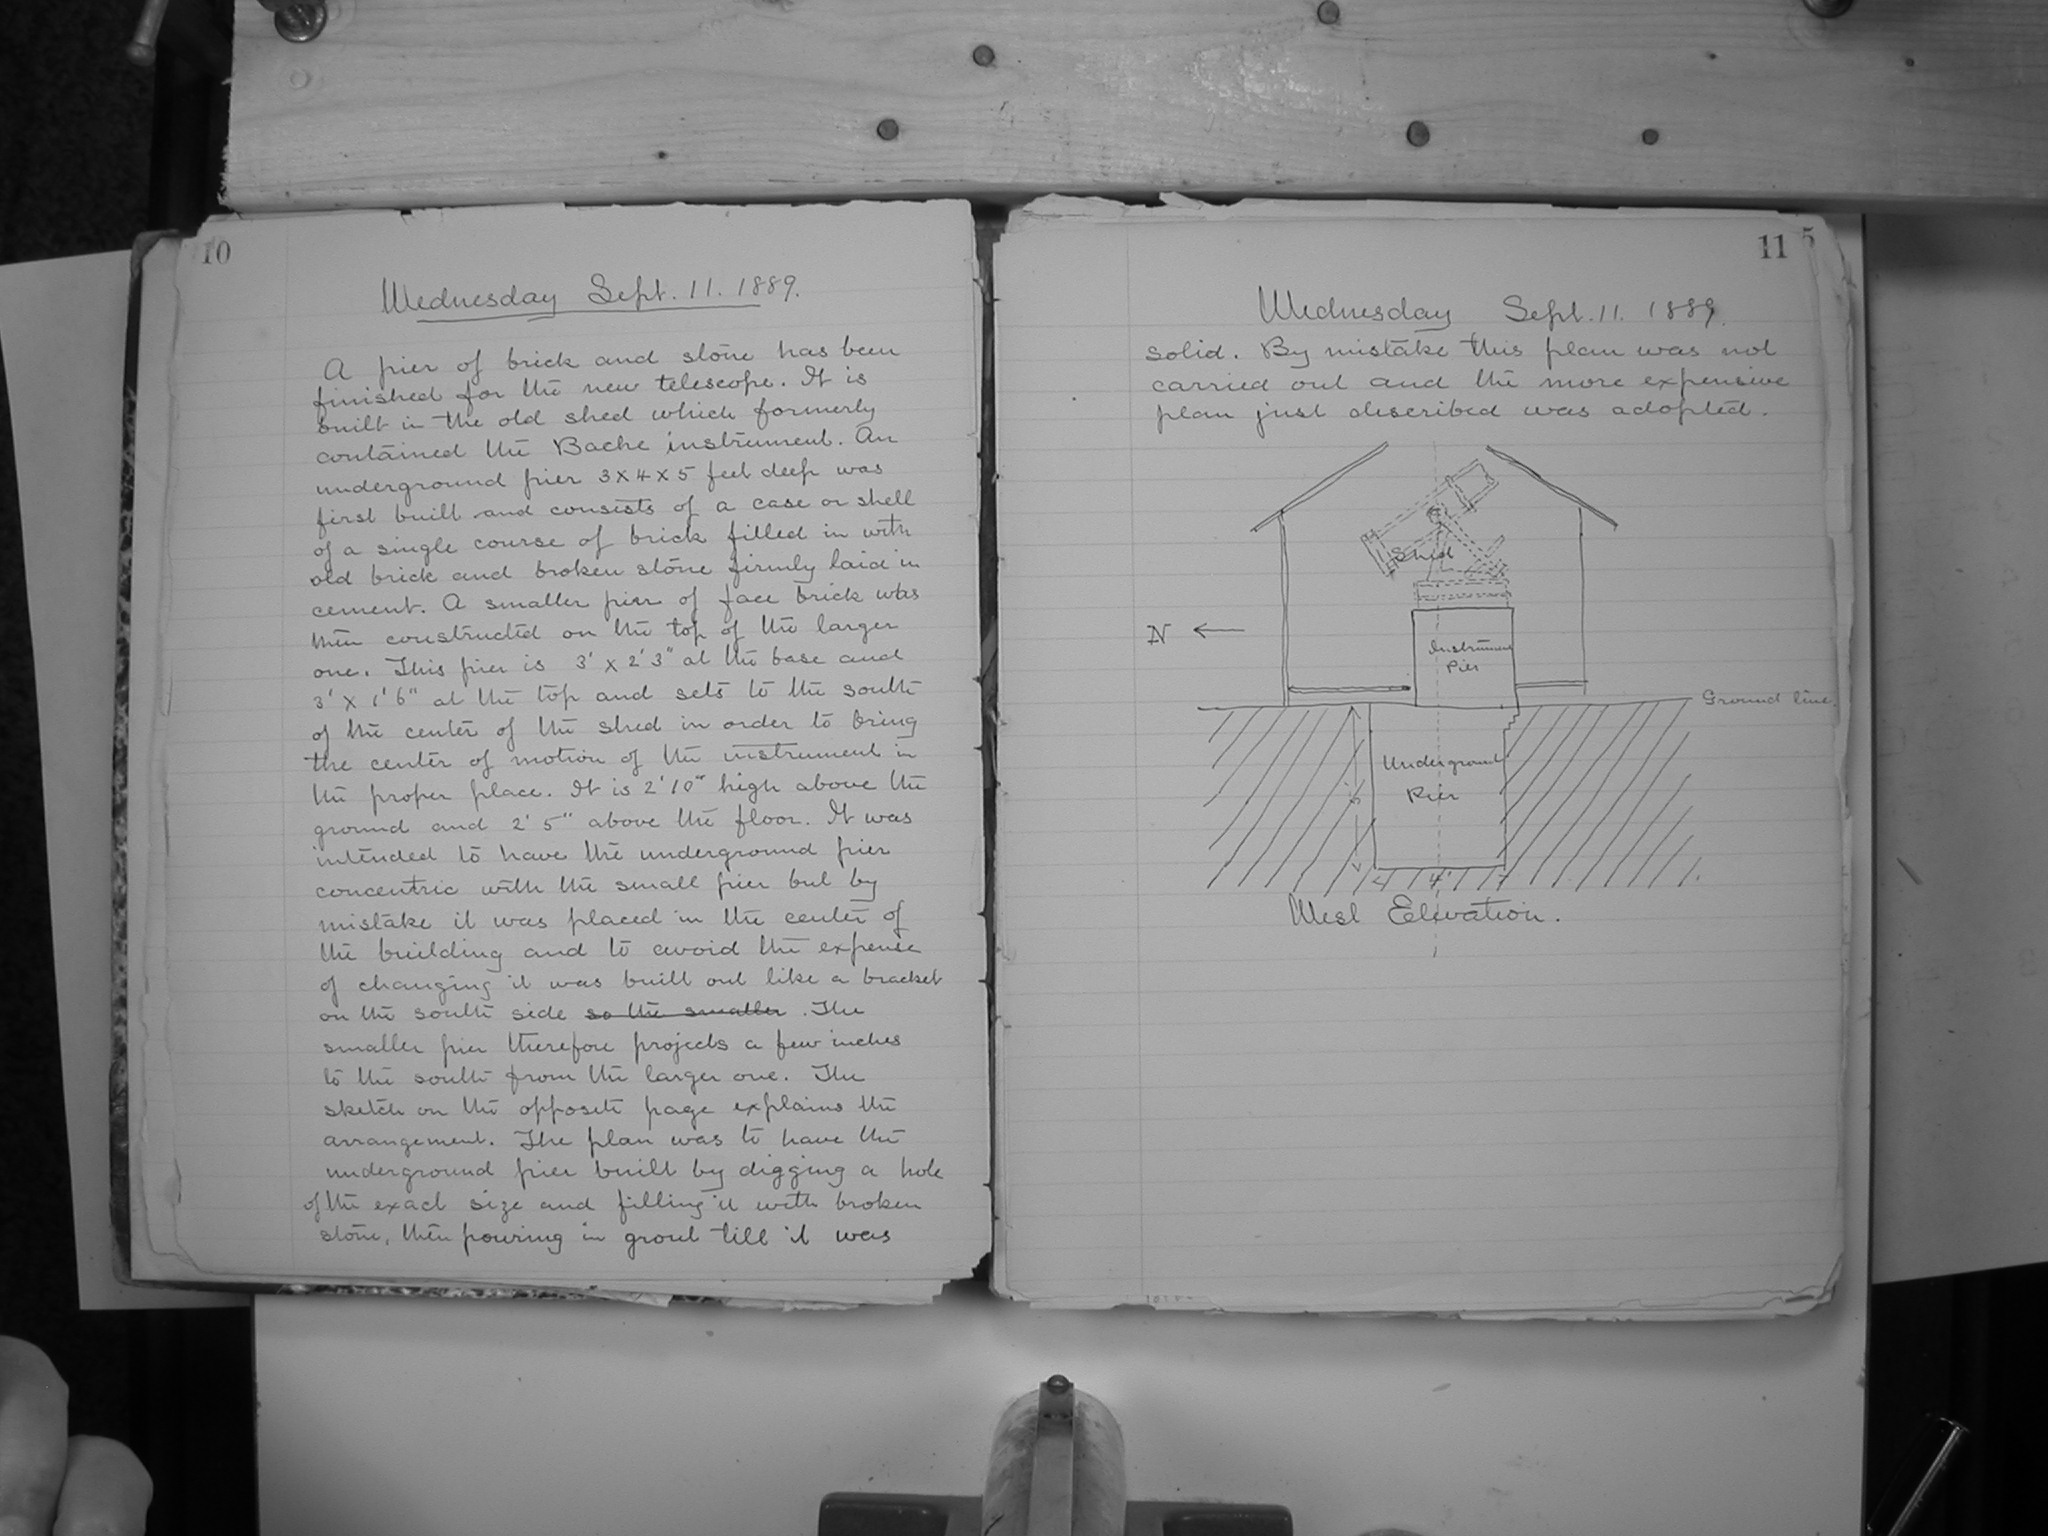 10
Wednesday Sept. 11. 1889.
A pier of brick and stone has been
finished for the new telescope. It is
built in the old shed which formerly
contained the Bache instrument. An
underground pier 3 x 4 x 5 feet deep was
first built and consists of a case or shell
of a single course of brick filled in with
old brick and broken stone firmly laid in
cement. A smaller pier of face brick was
then constructed on the top of the larger
one. This pier is 3' x 2' 3" at the base and
3' x 1' 6" at the top and sets to the south
of the center of the shed in order to bring
the center of motion of the instrument in
the proper place. It is 2' 10" high above the
ground and 2' 5" above the floor. It was
intended to have the underground pier
concentric with the small pier but by
mistake it was placed in the center of
the building and to avoid the expense
of changing it was built out like a bracket
on the south side so the smaller . The
smaller pier therefore projects a few inches
to the south from the larger one. The
sketch on the opposite page explains the
arrangement. The plan was to have the
underground pier built by digging a hole
of the exact size and filling it with broken
stone, then pouring in grout till it was
11 5
Wednesday Sept. 11. 1889.
solid. By mistake this plan was not
carried out and the more expensive
plan just described was adopted.
Shed
N
Instrument
Pier
Ground line.
Underground
Pier
5'
4'
West Elevation.